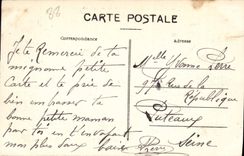 88
CARTE POSTALE
Correspondance
ADRESSE
Je te Remercie de ta
mignonne petite
Carte et te prie de
bien embrasser ta
bonne petite maman
par toi en t'envoyant
mes plus doux baisers
Pierre
Mlle
Rue de la
République
Puteaux
Seine